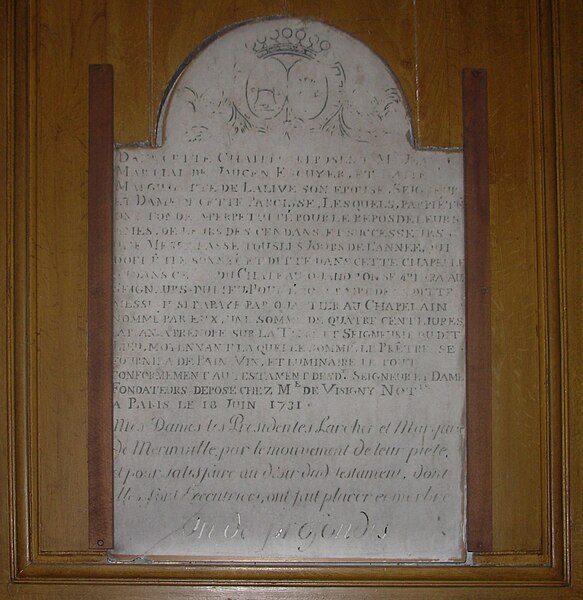 DANS CETTE CHAPELLE REPOSENT
MARTIAL DE JAUCEN ESCUYER, ET DAME
MARGUERITTE DE LALIVE SON EPOUSE, SEIGNEUR
ET DAME DE CETTE PAROISSE, LESQUELS, PAR PIETÉ
A PERPETUITÉ, POUR LE REPOS DE LEURS
AMES, DE LEURS DESCENDANS, ET SUCCESSEURS,
UNE MESSE BASSE TOUS LES JOURS DE L'ANNÉE, QUI
DOIT ETRE SONNÉE ET DITTE DANS CETTE CHAPELLE
OU DANS CELLE DU CHATEAU QUAND
SEIGNEURS DU LIEU, POUR
MESSE IL SERA PAYÉ PAR QUARTIER AU CHAPELAIN
NOMMÉ PAR EUX, UNE SOMME DE QUATRE CENT LIURES
PAR AN, A PRENDRE SUR LA TERRE ET SEIGNEURIE DU DIT
LIEU, MOYENNANT LAQUELLE SOMME, LE PRÊTRE SE
FOURNIRA DE PAIN, VIN, ET LUMINAIRE LE TOUT
CONFORMEMENT AU TESTAMENT DESDT. SEIGNEUR ET DAME
FONDATEURS DEPOSÉ CHEZ ME. DE VISIGNY NOTRE.
A PARIS LE 18 JUIN 1731.
Mes Dames les Presidentes Larcher et Marquise
de Merinville, par le mouvement de leur pieté,
et pour satisfaire au desir dud. testament, dont
elles sont Execütrices, ont fait placer ce marbre
Un de profundis